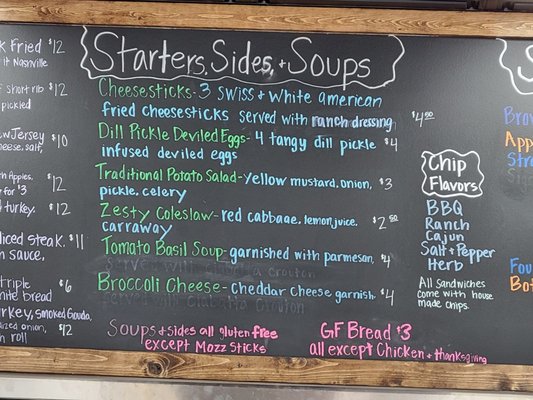 Starters, Sides, + Soups
Cheesesticks- 3 Swiss + white american
fried cheesesticks served with ranch dressing $4⁵⁰
Dill Pickle Deviled Eggs- 4 tangy dill pickle $4
infused deviled eggs
Traditional Potato Salad- yellow mustard, onion, $3
pickle, celery
Zesty Coleslaw- red cabbage, lemon juice, $2⁵⁰
carraway
Tomato Basil Soup- garnished with parmesan, $4
Broccoli Cheese- cheddar cheese garnish, $4
Soups + sides all gluten free
except Mozz Sticks
GF Bread $3
all except Chicken + thanksgiving
Chip
Flavors
BBQ
Ranch
Cajun
Salt + Pepper
Herb
All Sandwiches
come with house
made chips.
Fried $12
it Nashville
short rib $12
pickled
Jersey $10
cheese, salt,
Apples. $12
for $3
turkey. $12
steak. $11
sauce,
triple $6
white bread
Smoked Gouda,
onion, $12
roll